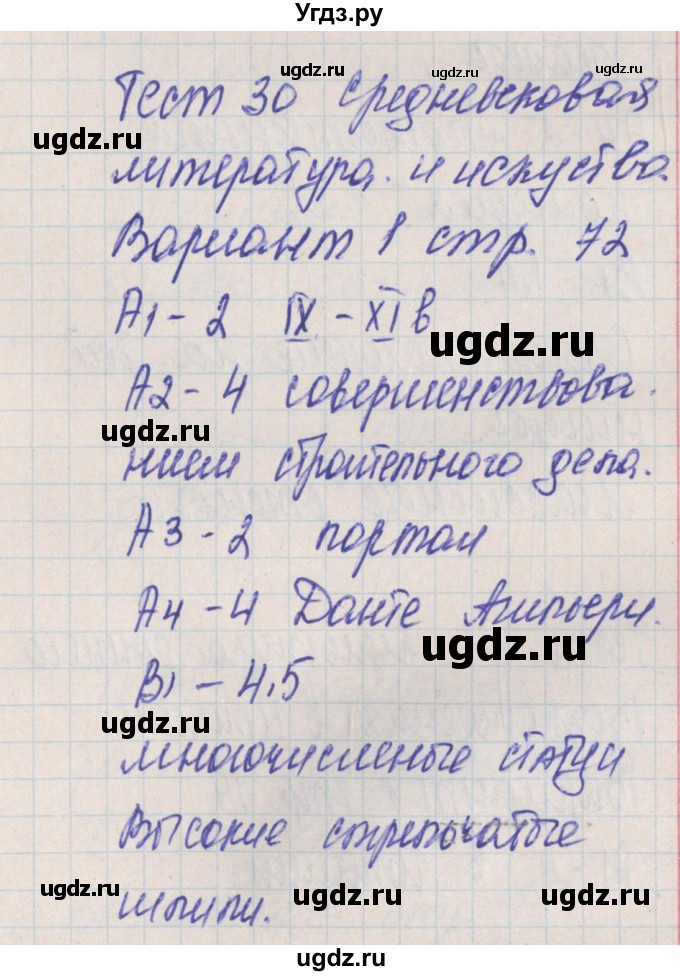 Угдз.ру
Тест 30 средневековая
литература. и искуства.
Вариант 1 стр. 72
А1 - 2 IX - XI в
А2 - 4 совершенствова.
нием строительного дела.
А3 - 2 портал
А4 - 4 Данте Алигьери.
В1 - 4,5
многочисленые статуи
Высокие стрельчатые
шпили.
ugdz.ru
ugdz.ru
ugdz.ru
ugdz.ru
ugdz.ru
ugdz.ru
ugdz.ru
ugdz.ru
ugdz.ru
ugdz.ru
ugdz.ru
ugdz.ru
ugdz.ru